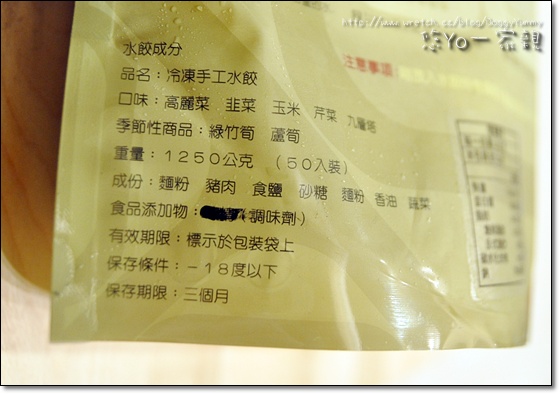 http://www.wretch.cc/blog/DoggyYummy
悠Yo一家親
注意事項
水餃成分
品名：冷凍手工水餃
口味：高麗菜 韭菜 玉米 芹菜 九層塔
季節性商品：綠竹筍 蘆筍
重量：1250公克 （50入裝）
成份：麵粉 豬肉 食鹽 砂糖 麵粉 香油 蔬菜
食品添加物：（調味劑）
有效期限：標示於包裝袋上
保存條件：－18度以下
保存期限：三個月